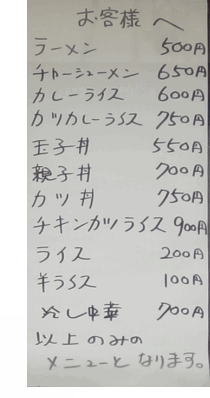 お客様へ
ラーメン 500円
チャーシューメン 650円
カレーライス 600円
カツカレーライス 750円
玉子丼 550円
親子丼 700円
カツ丼 750円
チキンカツライス 900円
ライス 200円
半ライス 100円
冷し中華 700円
以上のみの
メニューとなります。